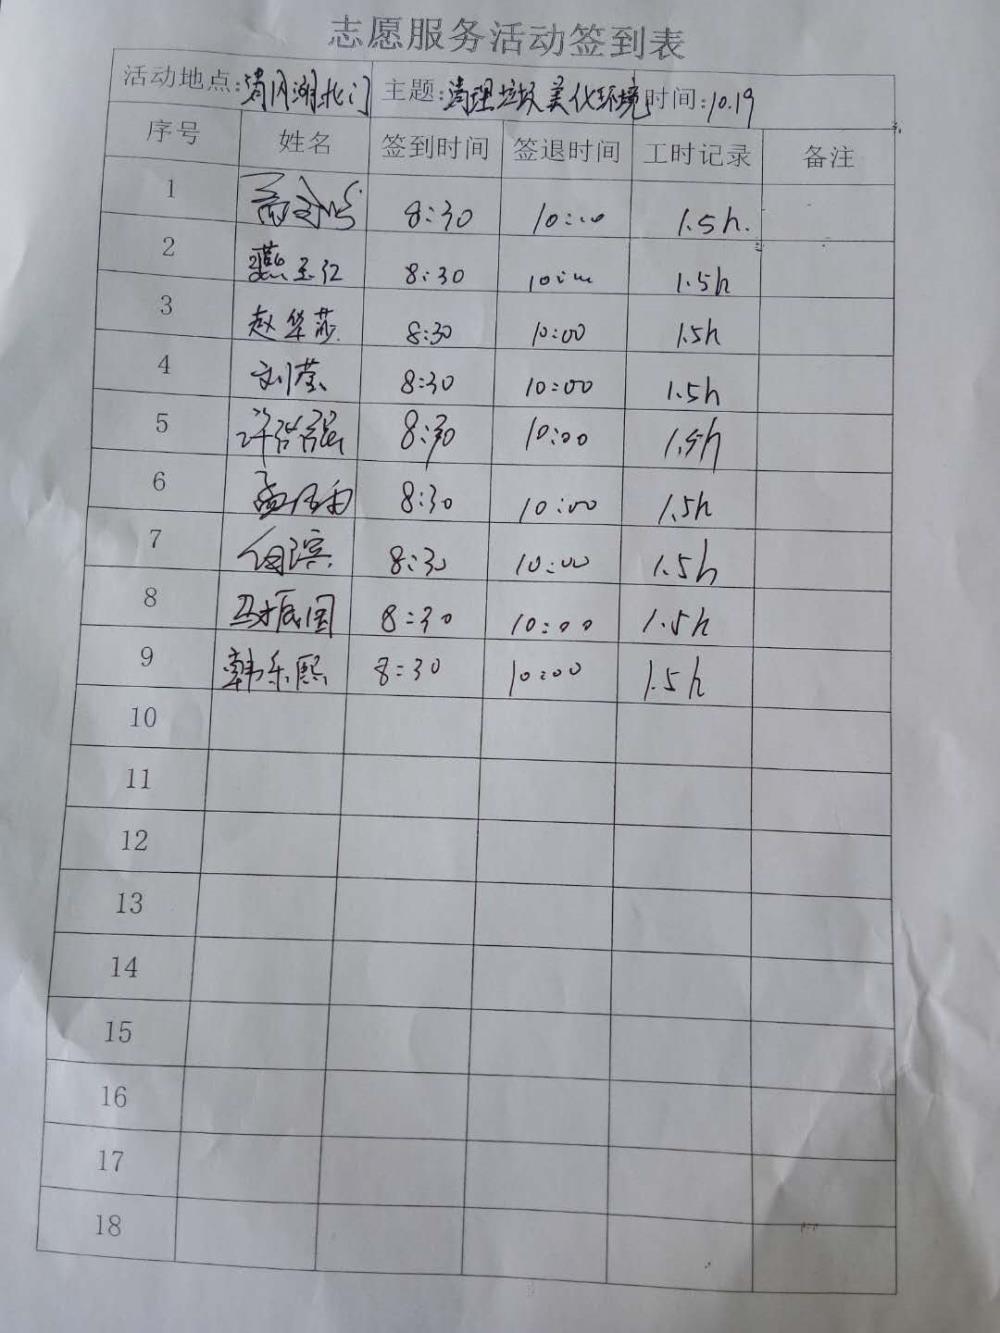 志愿服务活动签到表
活动地点: 清月湖北门 主题: 清理垃圾美化环境 时间: 10.19
序号 姓名 签到时间 签退时间 工时记录 备注
1 8:30 10:00 1.5h.
2 燕玉红 8:30 10:00 1.5h
3 赵华莎 8:30 10:00 1.5h
4 刘莹 8:30 10:00 1.5h
5 8:30 10:00 1.5h
6 8:30 10:00 1.5h
7 8:30 10:00 1.5h
8 马振国 8:30 10:00 1.5h
9 韩乐熙 8:30 10:00 1.5h
10
11
12
13
14
15
16
17
18